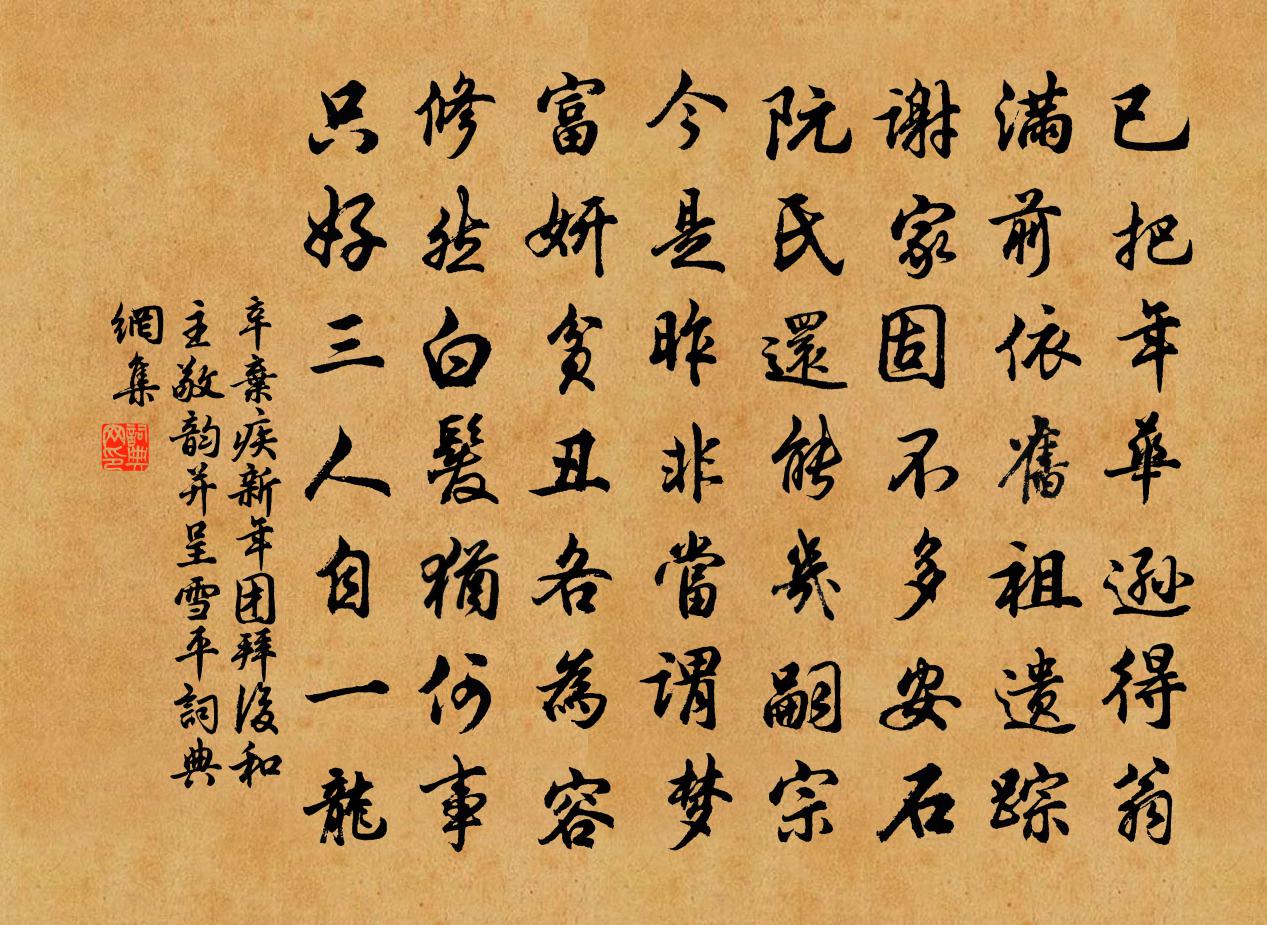 已把年華遜得翁
滿前依舊祖遺踪
謝家固不多安石
阮氏還能幾嗣宗
今是昨非當謂梦
富妍貧丑各為容
修然白髮猶何事
只好三人自一龍
辛棄疾新年团拜後和
主敬韵并呈雪平詞典
網集
詞典网印